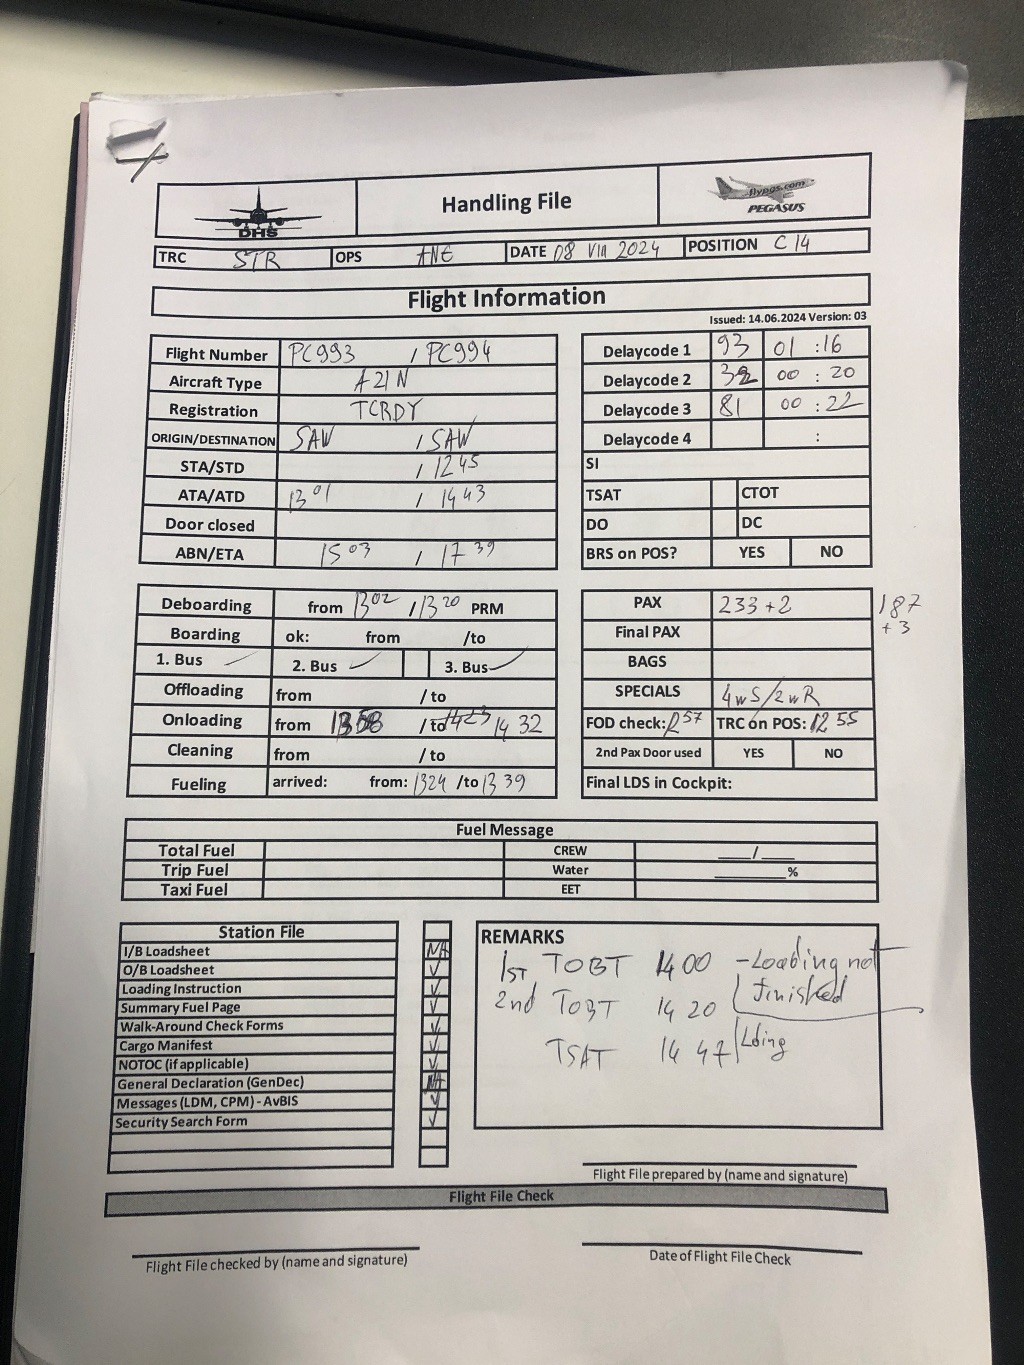 DHS
Handling File
flypgs.com
PEGASUS
TRC STR OPS ANE DATE 08 VIII 2024 POSITION C 14
Flight Information
Issued: 14.06.2024 Version: 03
Flight Number PC993 / PC994
Aircraft Type A21N
Registration TCRDY
ORIGIN/DESTINATION SAW / SAW
STA/STD / 1245
ATA/ATD 1301 / 1443
Door closed
ABN/ETA 1503 / 1739
Delaycode 1 93 01 : 16
Delaycode 2 32 00 : 20
Delaycode 3 81 00 : 22
Delaycode 4 :
SI
TSAT CTOT
DO DC
BRS on POS? YES NO
Deboarding from 1302 / 1320 PRM
Boarding ok: from /to
1. Bus 2. Bus 3. Bus
Offloading from / to
Onloading from 1358 / to 1423 1432
Cleaning from / to
Fueling arrived: from: 1324 /to 1339
PAX 233+2 187
+3
Final PAX
BAGS
SPECIALS 4wS/2wR
FOD check: 1257 TRC on POS: 1255
2nd Pax Door used YES NO
Final LDS in Cockpit:
Fuel Message
Total Fuel CREW ___/___
Trip Fuel Water ______%
Taxi Fuel EET
Station File
I/B Loadsheet NA
O/B Loadsheet ✓
Loading Instruction ✓
Summary Fuel Page ✓
Walk-Around Check Forms ✓
Cargo Manifest ✓
NOTOC (if applicable) ✓
General Declaration (GenDec) NA
Messages (LDM, CPM) - AvBIS ✓
Security Search Form ✓
REMARKS
1ST TOBT 1400 - Loading not
finished
2nd TOBT 1420
TSAT 1447 Lding
Flight File prepared by (name and signature)
Flight File Check
Flight File checked by (name and signature)
Date of Flight File Check